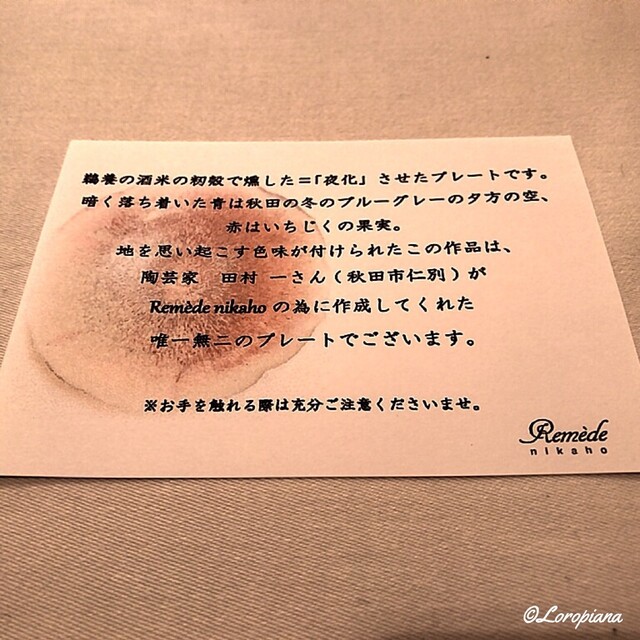 鵜養の酒米の籾殻で燻した=「夜化」させたプレートです。
暗く落ち着いた青は秋田の冬のブルーグレーの夕方の空、
赤はいちじくの果実。
地を思い起こす色味が付けられたこの作品は、
陶芸家　田村 一さん(秋田市仁別)が
Remède nikaho の為に作成してくれた
唯一無二のプレートでございます。
※お手を触れる際は充分ご注意くださいませ。
Remède
nikaho
©Loropiana